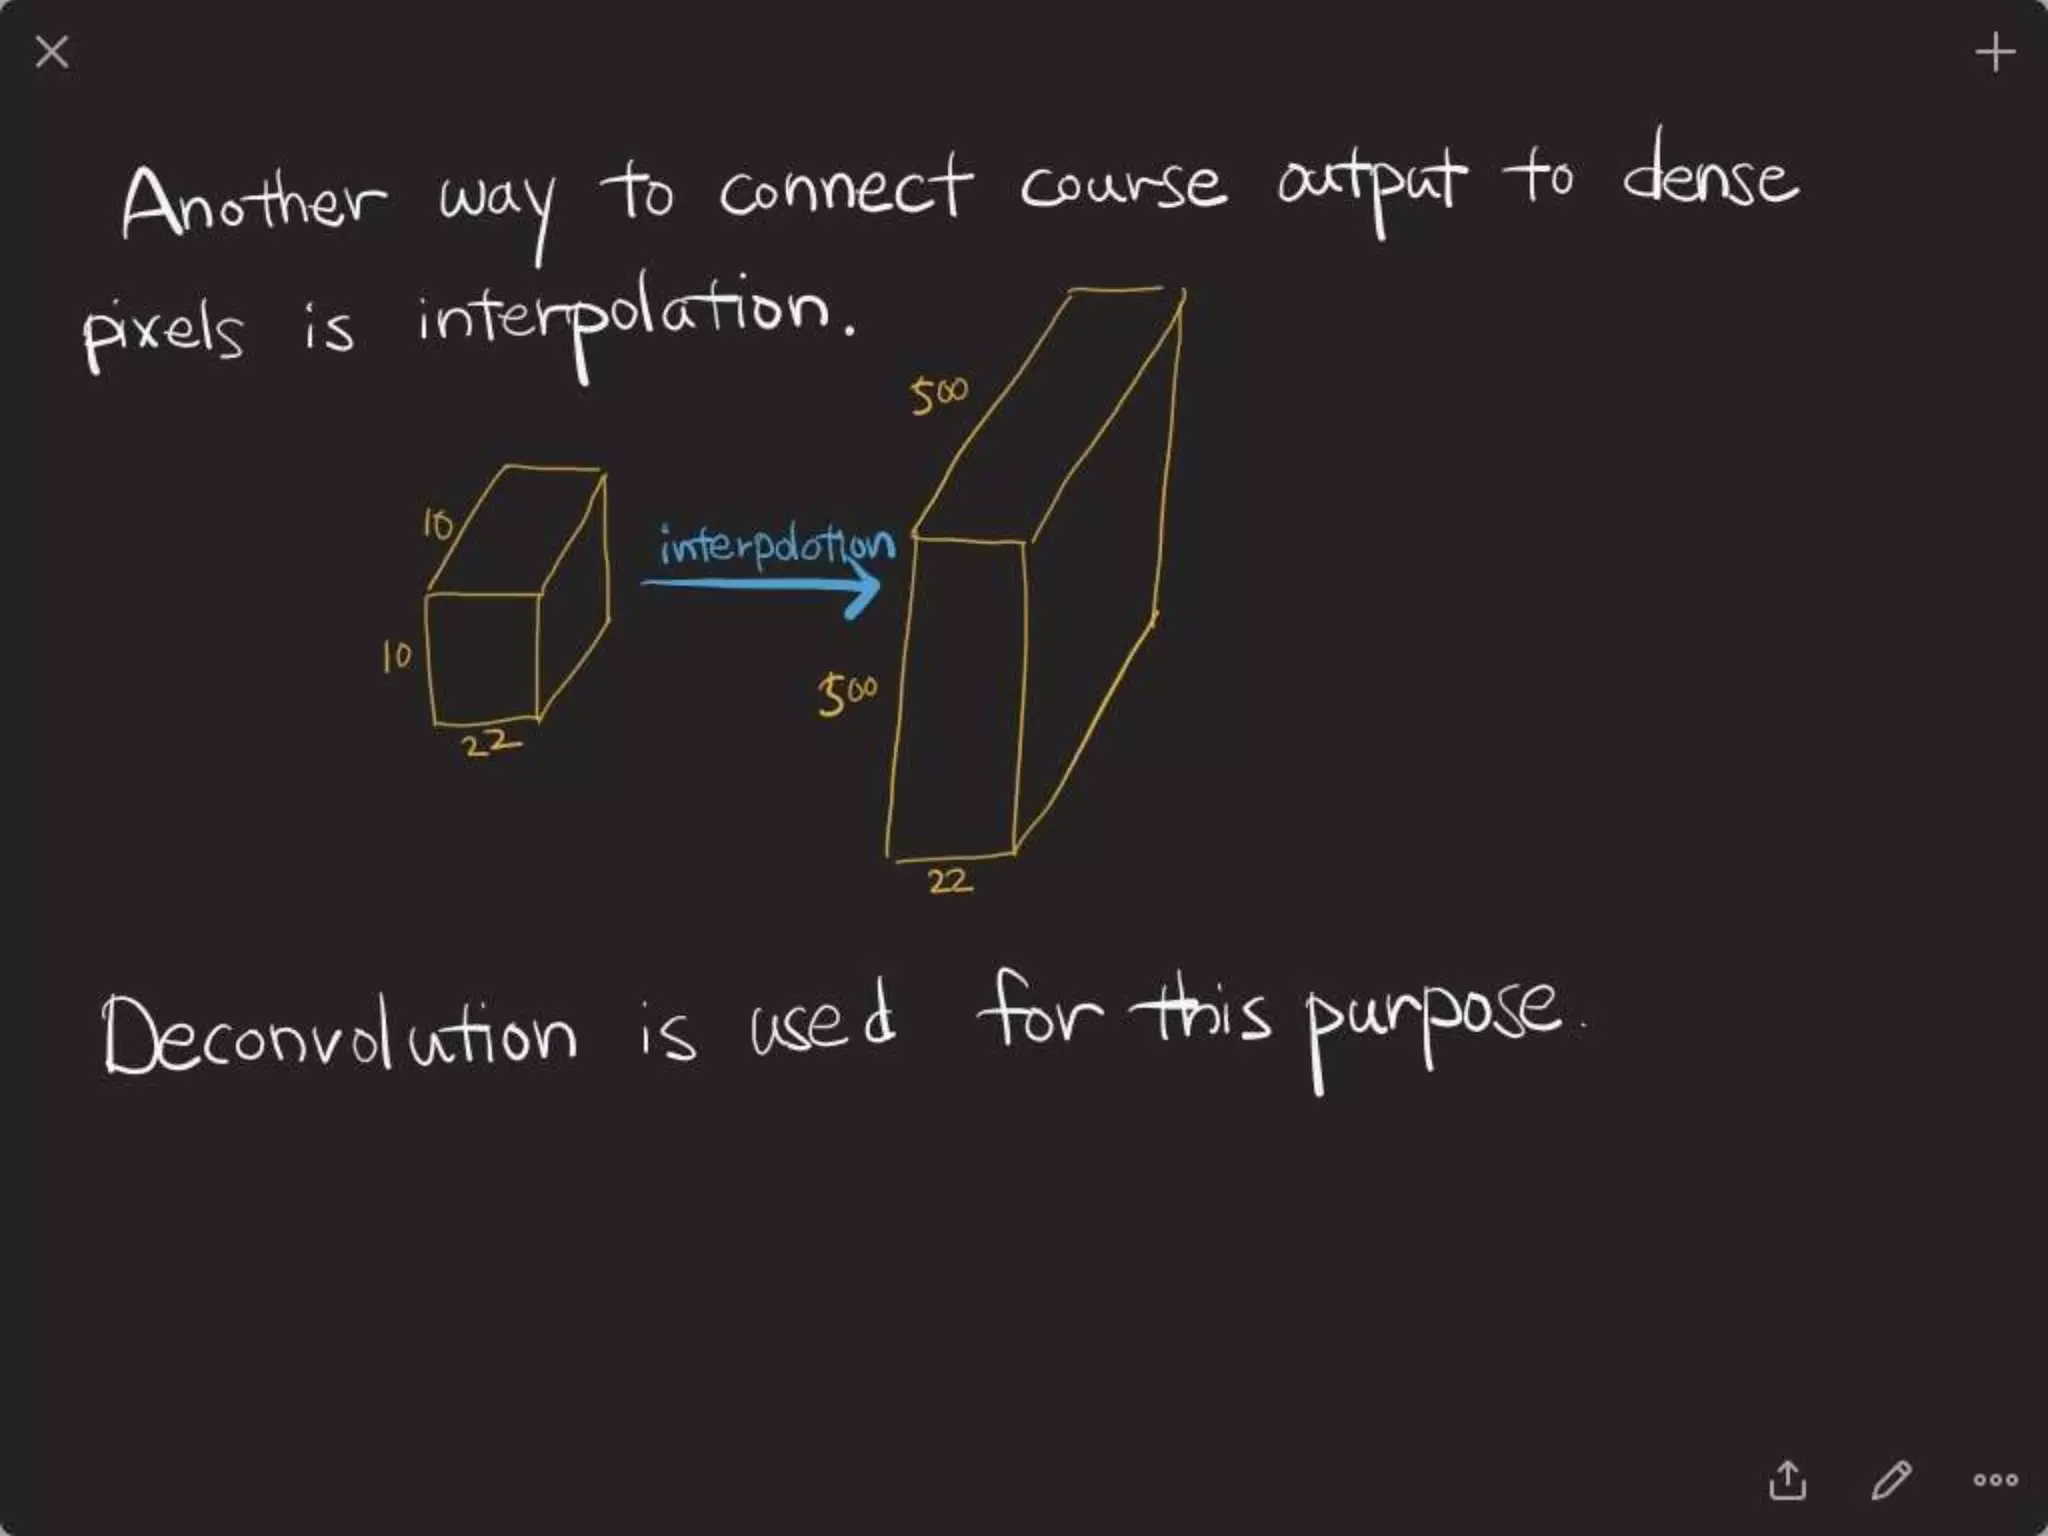 Another way to connect course output to dense
pixels is interpolation.
500
10
interpolation
10
500
22
22
Deconvolution is used for this purpose.